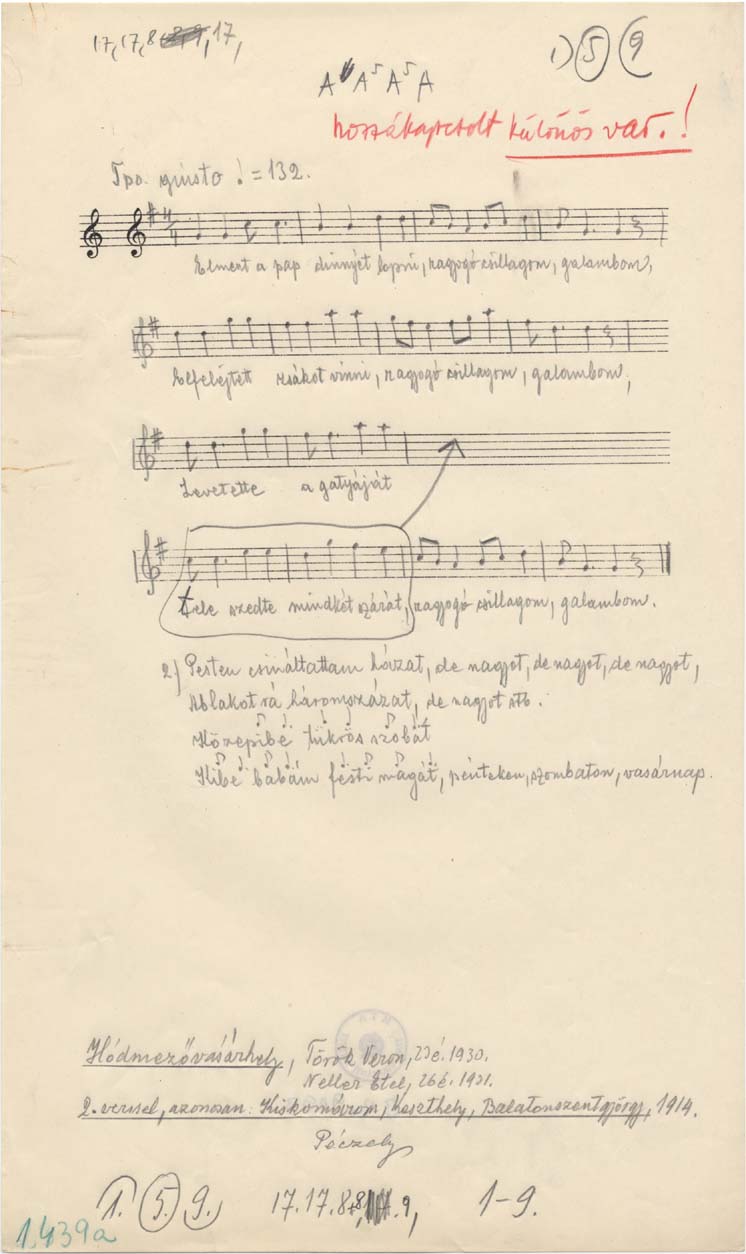 17, 17, 8 17,
1) 5 9
A A⁵ A⁵ A
hozzákapcsolt különös var.!
Tpo. giusto ♩ = 132.
4/4
Elment a pap dinnyét lopni, ragyogó csillagom, galambom,
Elfelejtett zsákot vinni, ragyogó csillagom, galambom,
Levetette a gatyáját
tele szedte mindkét szárát, ragyogó csillagom, galambom.
2) Pesten csináltattam házat, de nagyot, de nagyot, de nagyot,
Ablakot rá háromszázat, de nagyot stb.
Közepibe tükrös szobát
Kibe babám festi magát, pénteken, szombaton, vasárnap.
Hódmezővásárhely, Török Veron, 23é. 1930.
Neller Etel, 26é. 1931.
2. verssel, azonosan: Kiskomárom, Keszthely, Balatonszentgyörgy, 1914.
Péczely
1. 5. 9. 17. 17. 8+8, 9, 1-9.
1.439a